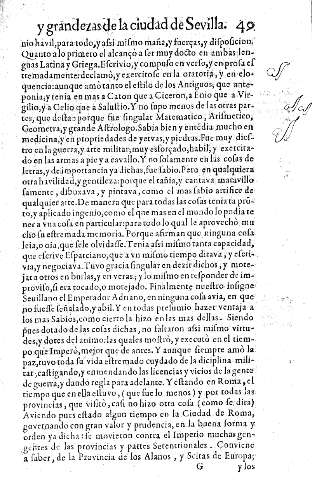 y grandezas de la ciudad de Sevilla. 49
nio havil, para todo, y assi mismo maña, y fuerças, y disposicion.
Quanto a lo primero el alcançò a ser muy docto en ambas len-
guas Latina y Griega, Escrivio, y compuso en verso, y en prosa es
tremadamente: declamò, y exercitose en la oratoria, y en elo-
quencia: aunque amò tanto el estilo de los Antiguos, que ante-
ponia, y tenia en mas a Caton que a Ciceron, a Enio que a Vir-
gilio, y a Celio que a Salustio. Y no supo menos de las otras par-
tes, que desta: porque fue singular Matematico, Arismetico,
Geometra, y grande Astrologo. Sabia bien y entēdia mucho en
medicina, y en propriedades de yervas, y piedras. Fue muy dies-
tro en la guerra, y arte militar, muy esforçado, habil, y exercita-
do en las armas a pie y a cavallo. Y no solamente en las cosas de
letras, y de importancia ya dichas, fue sabio. Pero en qualquiera
otra havilidad, y gentileza: porque el tañia, y cantava maravillo
samente, dibuxava, y pintava, como el mas sabio artifice de
qualquier arte. De manera que para todas las cosas tenia tā prō-
to, y aplicado ingenio, como el que mas en el mundo lo podia te
ner a una cosa en particular: para todo lo qual le aprovechò mu
cho su estremada memoria. Porque afirman que ninguna cosa
leia, o oia, que se le olvidasse. Tenia assi mismo tanta capacidad,
que escrive Esparciano, que a un mismo tiempo ditava, y escri-
via, y negociava. Tuvo gracia singular en dezir dichos, y mote-
jar a otros en burlas, y en veras; y lo mismo en responder de im-
proviso, si era tocado, o motejado. Finalmente nuestro insigne
Sevillano el Emperador Adriano, en ninguna cosa avia, en que
no fuesse señalado, y abil. Y en todas presumio hazer ventaja a
los mas Sabios, como cierto la hizo en las mas dellas. Siendo
pues dotado de las cosas dichas, no faltaron assi mismo virtu-
des, y dotes del animo: las quales mostrò, y executò en el tiem-
po que Imperò, mejor que de antes. Y aunque siempre amò la
paz, tuvo toda su vida estremado cuydado de la diciplina mili-
tar; castigando, y enmendando las licencias y vicios de la gente
de guerra, y dando regla para adelante. Y estando en Roma, el
tiempo que en ella estuvo, (que fue lo menos) y por todas las
provincias, que visitò, casi no hizo otra cosa (como se dira)
Aviendo pues estado algun tiempo en la Ciudad de Roma,
governando con gran valor y prudencia, en la buena forma y
orden ya dicha: se movieron contra el Imperio muchas gen-
gentes de las provincias y partes Setentrionales. Conviene
a saber, de la Provincia de los Alanos, y Scitas de Europa;
G y los